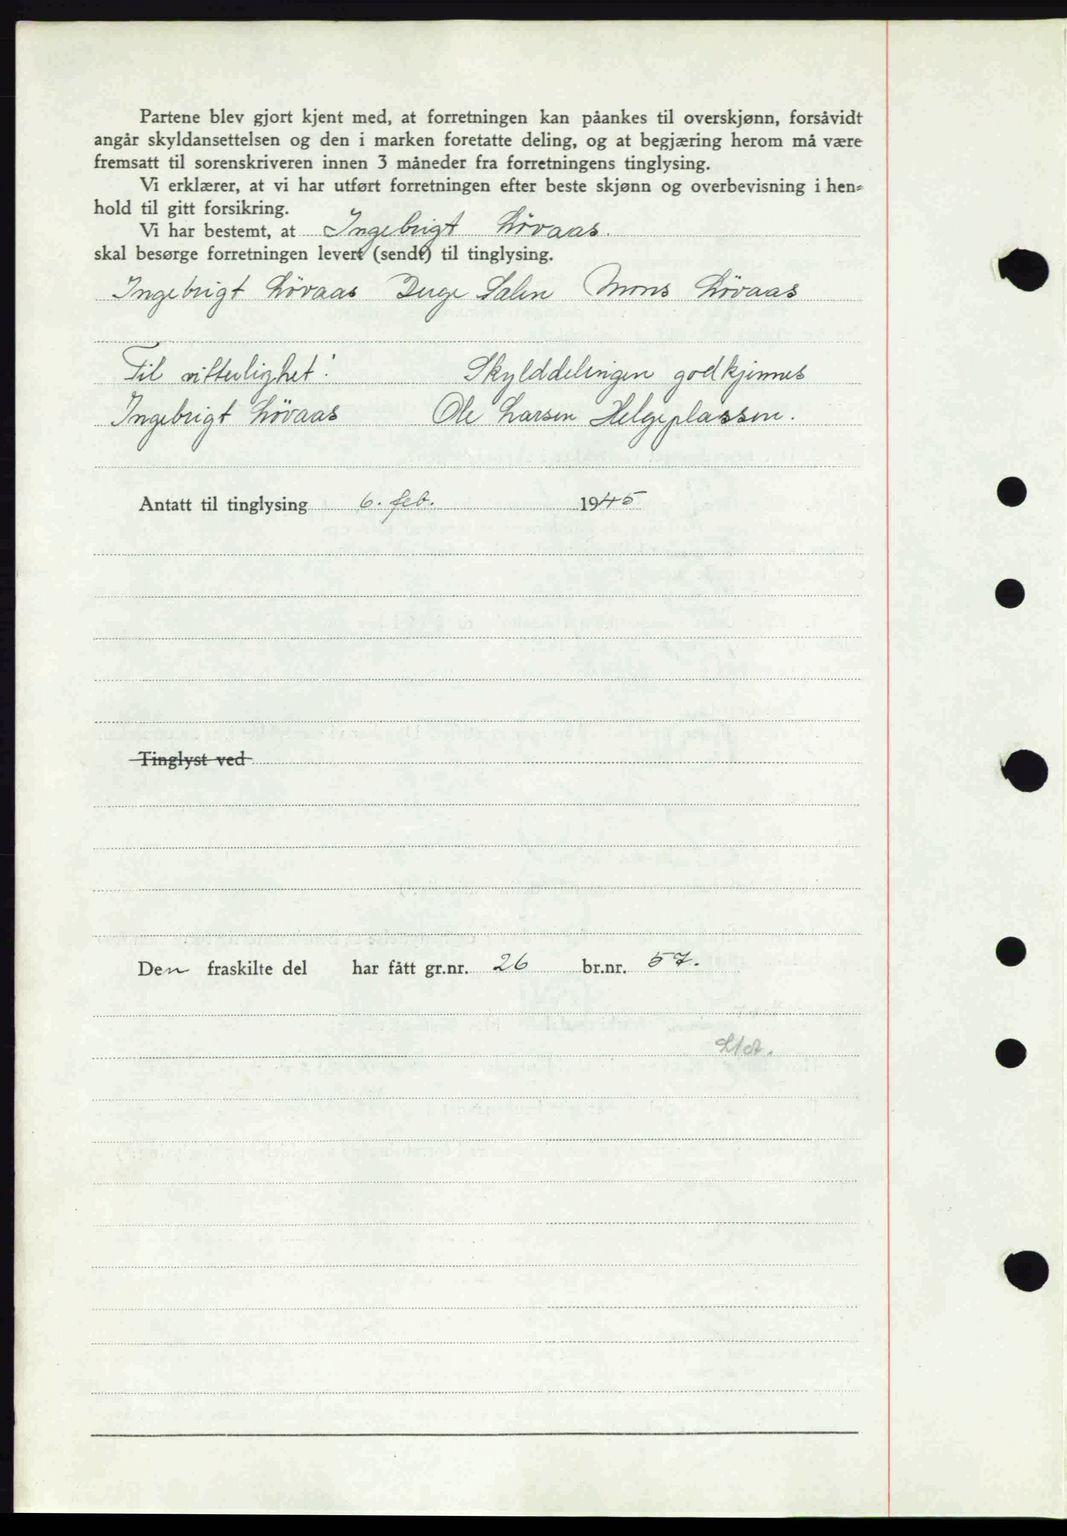 Partene blev gjort kjent med, at forretningen kan påankes til overskjønn, forsåvidt
angår skyldansettelsen og den i marken foretatte deling, og at begjæring herom må være
fremsatt til sorenskriveren innen 3 måneder fra forretningens tinglysing.
Vi erklærer, at vi har utført forretningen efter beste skjønn og overbevisning i hen-
hold til gitt forsikring.
Vi har bestemt, at Ingebrigt Lövaas.
skal besørge forretningen levert (sendt) til tinglysing.
Ingebrigt Lövaas Berge Salen Mons Lövaas
Til vitterlighet: Skylddelingen godkjennes
Ingebrigt Lövaas Ole Larsen Helgeplassen.
Antatt til tinglysing 6. feb. 1945
Tinglyst ved
Den fraskilte del har fått gr.nr. 26 br.nr. 57.